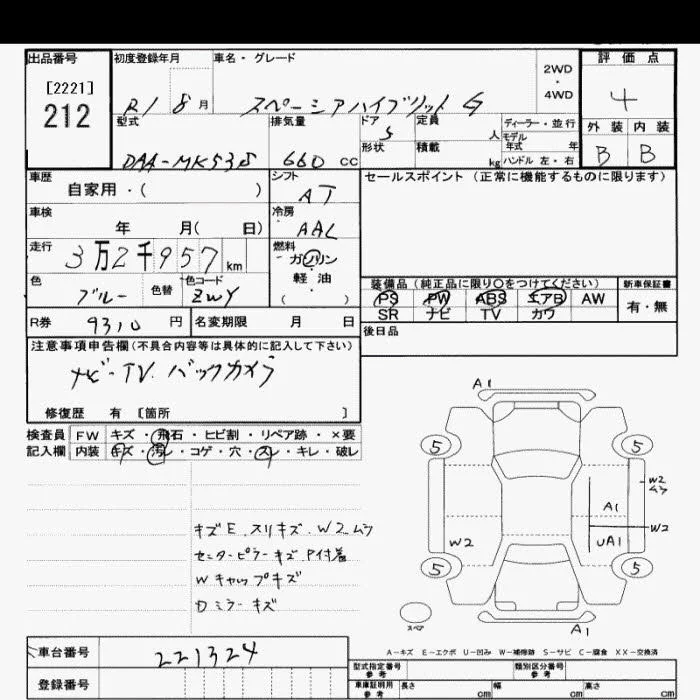 出品番号 初度登録年月 車名・グレード 2WD・4WD 評価点
[2221]
212
R1 8 月 スペーシアハイブリット G 4
型式 排気量 ドア 定員 ディーラー・並行 外装 内装
DAA-MK53S 660 cc 5 人 モデル年式 年 B B
形状 積載 kg ハンドル 左・右
車歴 シフト セールスポイント (正常に機能するものに限ります)
自家用・( ) AT
車検 冷房
年 月( 日) AAC
走行 燃料
3万2千957 km ガソリン
軽・油
( )
色 色替 色コード
ブルー ZWY
装備品 (純正品に限り〇をつけてください) 新車保証書
PS PW ABS エアB AW 有・無
SR ナビ TV カワ
R券 9310 円 名変期限 月 日 後日品
注意事項申告欄(不具合内容等は具体的に記入して下さい)
ナビ-TV. バックカメラ
修復歴 有 [箇所 ]
検査員 FW キズ・飛石・ヒビ割・リペア跡・×要
記入欄 内装 キズ・汚レ・コゲ・穴・スレ・キレ・破レ
A1
5 5
W2 ムラ
A1
W2
W2 UA1
5 5
スペア
A1
キズE スリキズ W2ムラ
センターピラーキズ P付着
Wキャップキズ
Dミラーキズ
A-キズ E-エクボ U-凹み W-補修跡 S-サビ C-腐食 XX-交換済
車台番号 221324
登録番号
型式指定番号 参考 類別区分番号 参考
車庫証明用 参考 長さ cm 幅 cm 高さ cm